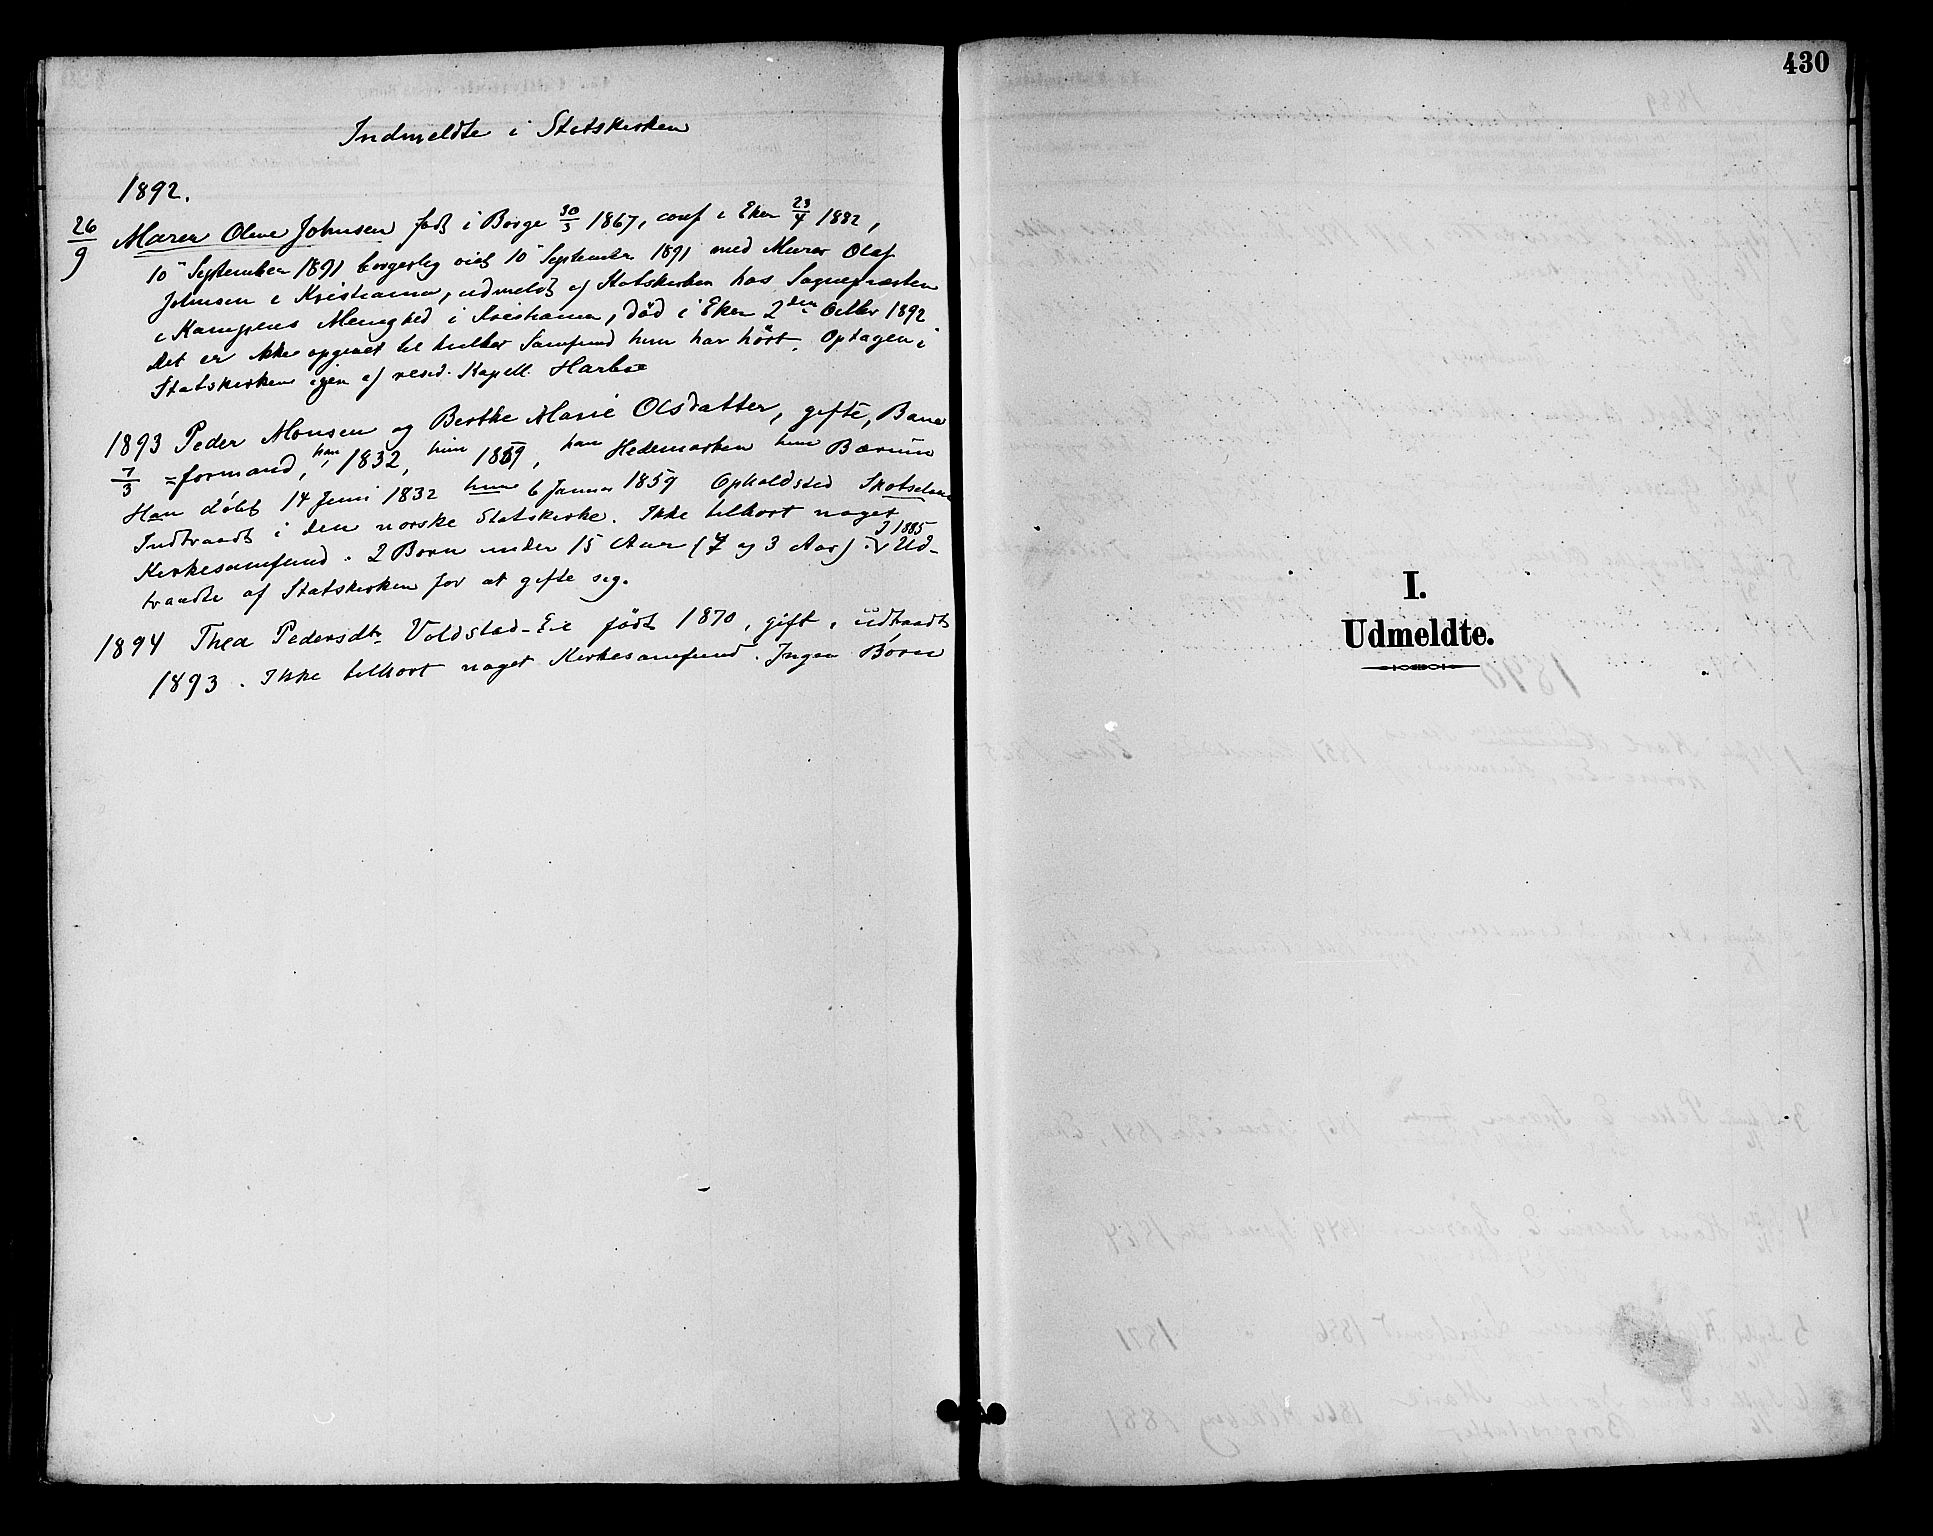 Indmeldte i Statskirken
1892.
26/9 Maren Oline Johnsen født i Borge 30/3 1867, conf i Eker 23/4 1882,
10 September 1891 borgerlig viet 10 September 1891 med Murer Olaf
Johnsen i Kristiania, udmeldt af Statskirken hos Sognepræsten
i Kampens Menighed i Kristiania, død i Eker 2den Octbr 1892
Det er ikke opgivet til hvilket Samfund hun har hört. Optagen i
Statskirken igjen af resid. Kapell. Harboe
1893 Peder Monsen og Berthe Marie Olsdatter, gifte, Bane
7/3 =formand, han 1832, hun 1859, han Hedemarken hun Bærum
Han döbt 14 Juni 1832 hun 6 Januar 1859 Opholdsted Skotselven
Indtraadt i den norske Statskirke. Ikke tilhört noget
Kirkesamfund. 2 Börn under 15 Aar (7 og 3 Aar). I 1885 Ud-
traadte af Statskirken for at gifte sig.
1894 Thea Pedersdtr Voldstad-Eie født 1870, gift, udtraadt
1893. Ikke tilhort noget Kirkesamfund. Ingen Börn
430
I.
Udmeldte.